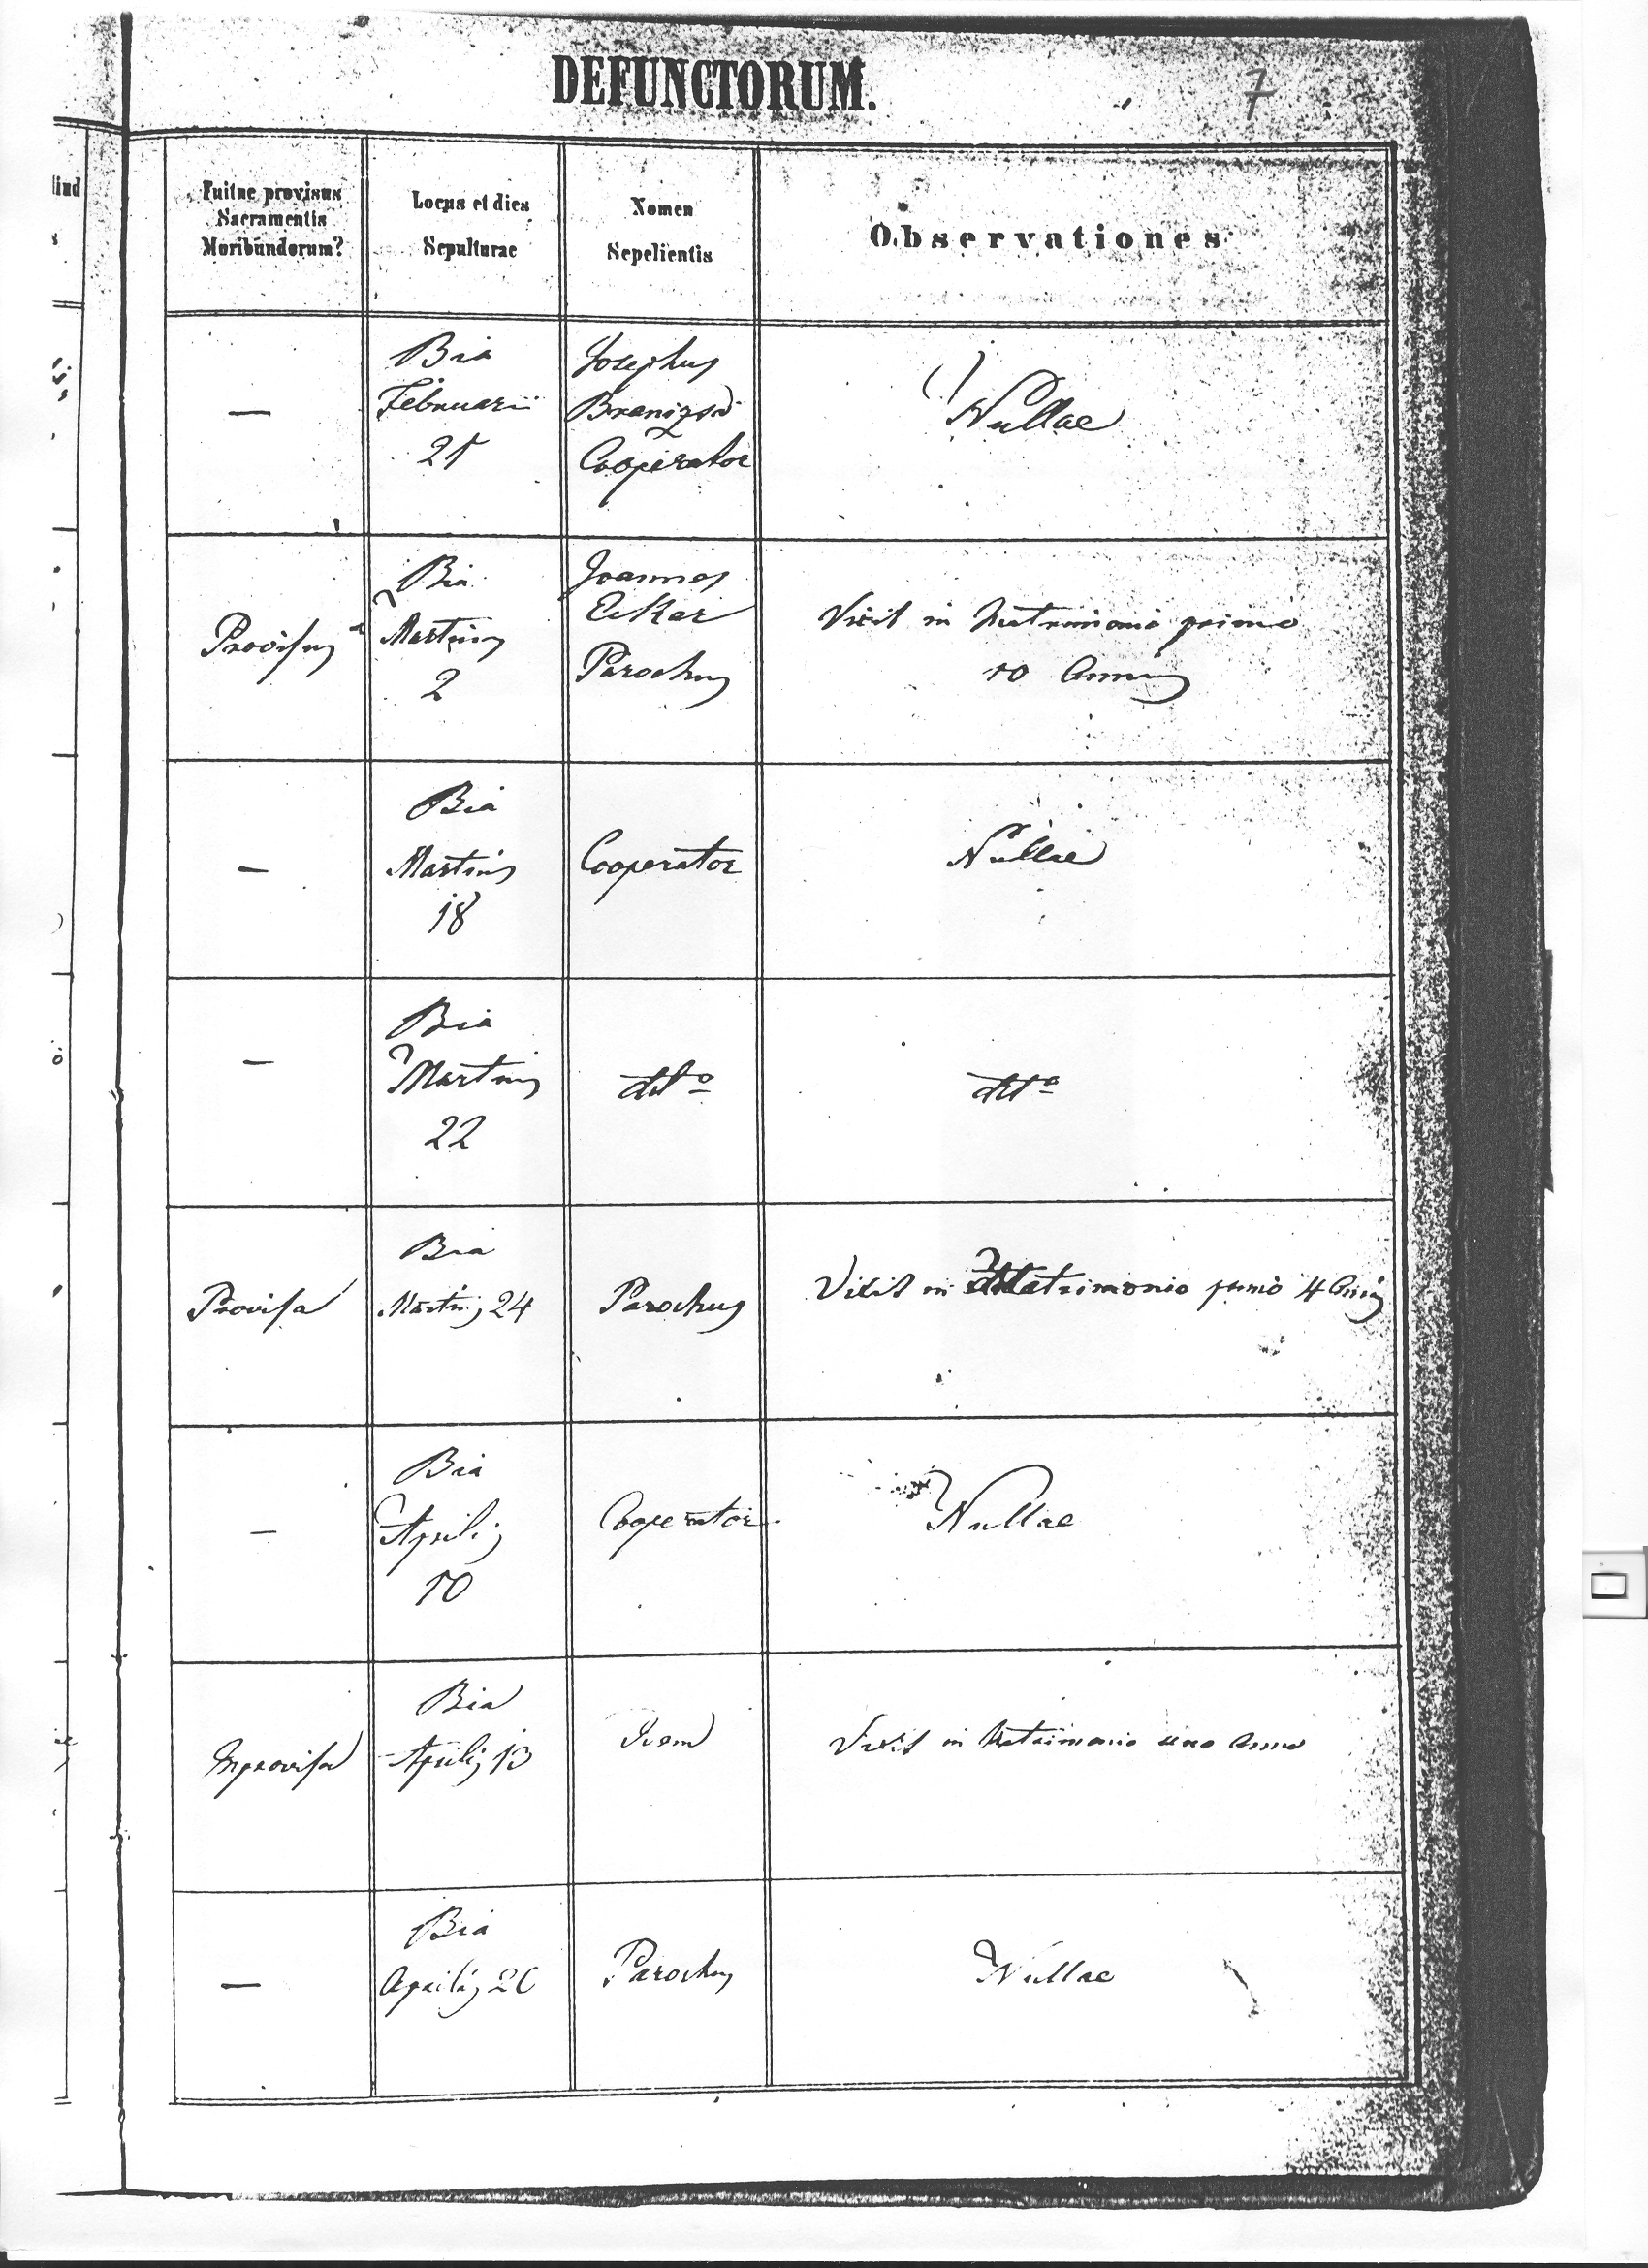 DEFUNCTORUM.
7
Fuitne provisus
Sacramentis
Moribundorum?
Locus et dies
Sepulturae
Nomen
Sepelientis
Observationes
—
Bia
Februarii
21
Josephus
Cooperator
Nullae
Provisus
Bia
Martius
2
Joannes
Parochus
Vixit in Matrimonio primo
10 Annis
—
Bia
Martius
18
Cooperator
Nullae
—
Bia
Martius
22
detto
detto
Provisa
Bia
Martij 24
Parochus
Vixit in Matrimonio primo 4 Annis
—
Bia
Aprilis
10
Cooperator
Nullae
Improvisa
Bia
Aprilis 13
Idem
Vixit in Matrimonio uno Anno
—
Bia
Aprilis
Parochus
Nullae